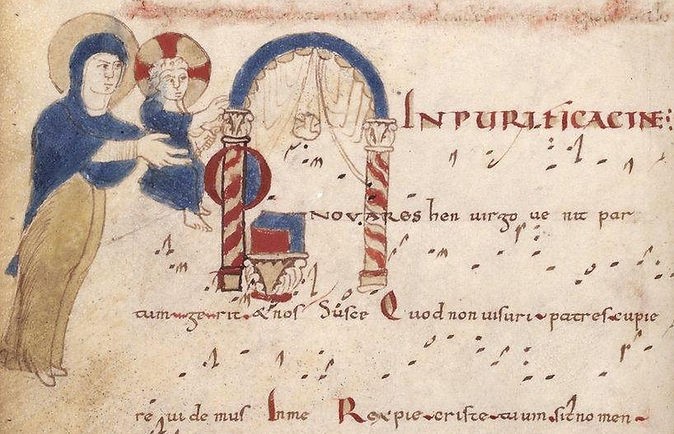 IN PURIFICACINE:
O NOVA RES hen uirgo ue nit par
tum gerit. & nos Susce Quod non uisuri patres cupie
re ui de mus In me Rex pie criste tuum sit no men